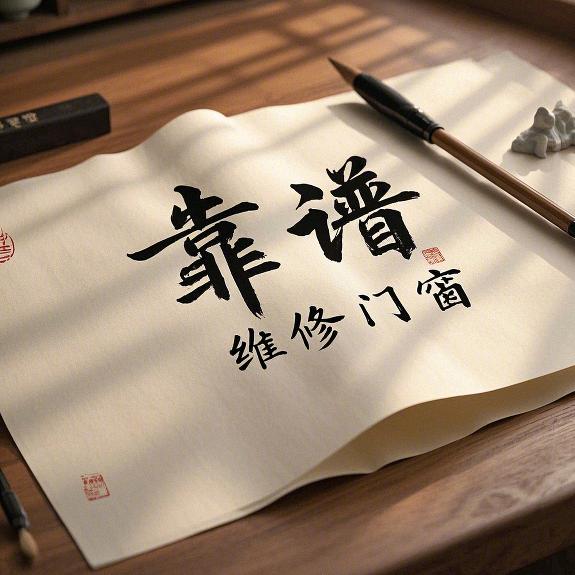 靠谱
维修门窗